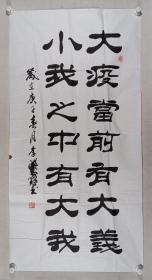 大疫當前有大義
小我之中有大我
歲在庚子春月李